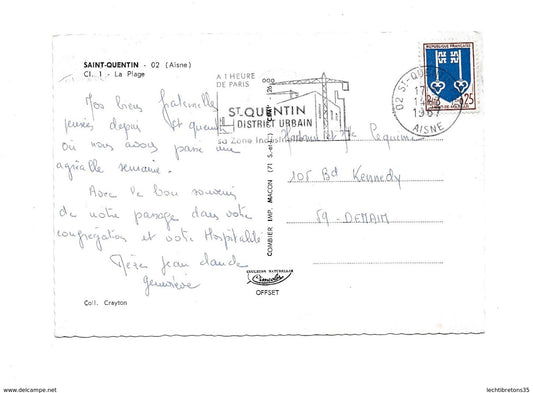 SAINT-QUENTIN - 02 (Aisne)
Cl. 1 - La Plage
Nos bien fraternelles
pensées depuis St quentin
où nous avons passé une
agréable semaine.
Avec le bon souvenir
de notre passage dans votre
congrégation et votre Hospitalité
jean claude
Geneviève
Coll. Crayton
A 1 HEURE
DE PARIS
ST QUENTIN
DISTRICT URBAIN
sa Zone
REPUBLIQUE FRANÇAISE
0,25
02 ST-QUENTIN
1967
AISNE
105 Bd Kennedy
59 - DENAIN
COMBIER IMP. MACON (71 S.-et-L.) "CIM"
COULEURS NATURELLES
Cimcolor
OFFSET
https://www.delcampe.net
lechtibretons35